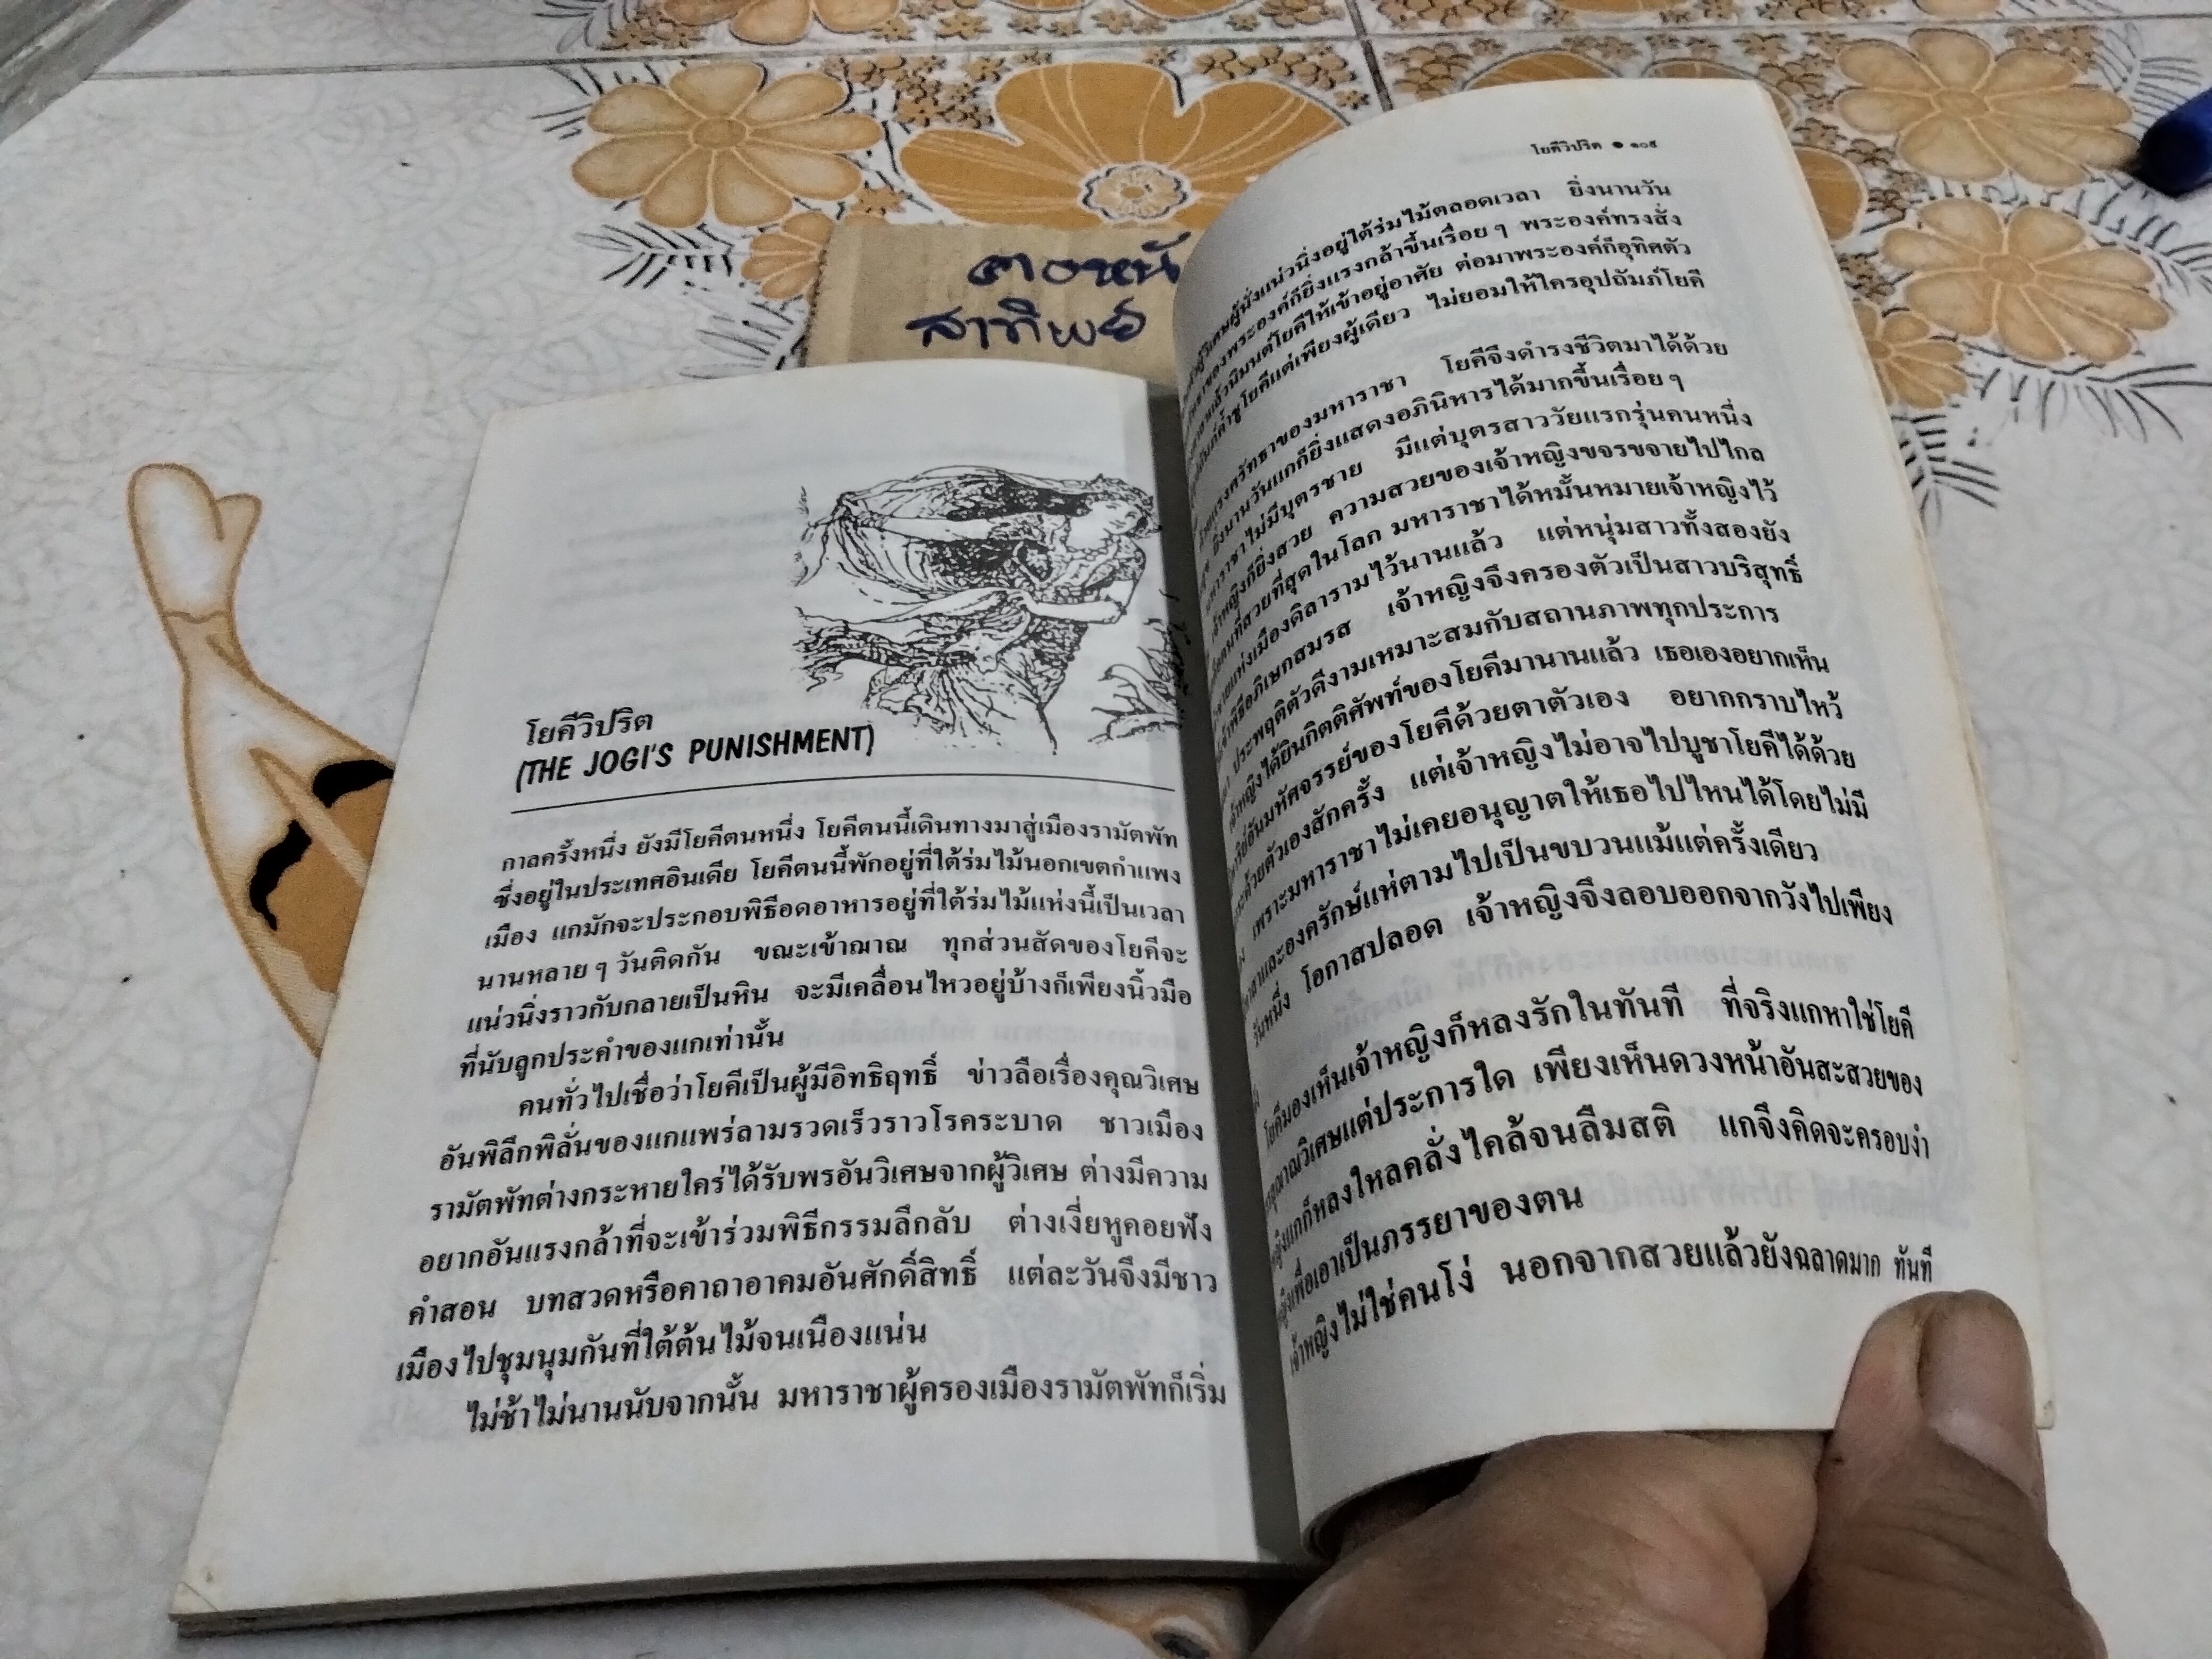 โยคีวิปริต
(THE JOGI'S PUNISHMENT)
กาลครั้งหนึ่ง ยังมีโยคีตนหนึ่ง โยคีตนนี้เดินทางมาสู่เมืองรามัตพัท
ซึ่งอยู่ในประเทศอินเดีย โยคีตนนี้พักอยู่ที่ใต้ร่มไม้นอกเขตกำแพง
เมือง แกมักจะประกอบพิธีอดอาหารอยู่ที่ใต้ร่มไม้แห่งนี้เป็นเวลา
นานหลาย ๆ วันติดกัน ขณะเข้าฌาณ ทุกส่วนสัดของโยคีจะ
แน่วนิ่งราวกับกลายเป็นหิน จะมีเคลื่อนไหวอยู่บ้างก็เพียงนิ้วมือ
ที่นับลูกประคำของแกเท่านั้น
คนทั่วไปเชื่อว่าโยคีเป็นผู้มีอิทธิฤทธิ์ ข่าวลือเรื่องคุณวิเศษ
อันพิลึกพิลั่นของแกแพร่ลามรวดเร็วราวโรคระบาด ชาวเมือง
รามัตพัทต่างกระหายใคร่ได้รับพรอันวิเศษจากผู้วิเศษ ต่างมีความ
อยากอันแรงกล้าที่จะเข้าร่วมพิธีกรรมลึกลับ ต่างเงี่ยหูคอยฟัง
คำสอน บทสวดหรือคาถาอาคมอันศักดิ์สิทธิ์ แต่ละวันจึงมีชาว
เมืองไปชุมนุมกันที่ใต้ต้นไม้จนเนืองแน่น
ไม่ช้าไม่นานนับจากนั้น มหาราชาผู้ครองเมืองรามัตพัทก็เริ่ม
โยคีวิปริต ● ๑๐๕
ผู้นั่งแน่วนิ่งอยู่ใต้ร่มไม้ตลอดเวลา ยิ่งนานวัน
ของพระองค์ก็ยิ่งแรงกล้าขึ้นเรื่อย ๆ พระองค์ทรงสั่ง
แล้วนิมนต์โยคีให้เข้าอยู่อาศัย ต่อมาพระองค์ก็อุทิศตัว
ค้ำชูโยคีแต่เพียงผู้เดียว ไม่ยอมให้ใครอุปถัมภ์โยคี
แรงศรัทธาของมหาราชา โยคีจึงดำรงชีวิตมาได้ด้วย
ยิ่งนานวันแกก็ยิ่งแสดงอภินิหารได้มากขึ้นเรื่อย ๆ
มหาราชาไม่มีบุตรชาย มีแต่บุตรสาววัยแรกรุ่นคนหนึ่ง
เจ้าหญิงก็ยิ่งสวย ความสวยของเจ้าหญิงขจรขจายไปไกล
คนที่สวยที่สุดในโลก มหาราชาได้หมั้นหมายเจ้าหญิงไว้
แห่งเมืองดิลารามไว้นานแล้ว แต่หนุ่มสาวทั้งสองยัง
พิธีอภิเษกสมรส เจ้าหญิงจึงครองตัวเป็นสาวบริสุทธิ์
ประพฤติตัวดีงามเหมาะสมกับสถานภาพทุกประการ
เจ้าหญิงได้ยินกิตติศัพท์ของโยคีมานานแล้ว เธอเองอยากเห็น
อันมหัศจรรย์ของโยคีด้วยตาตัวเอง อยากกราบไหว้
ด้วยตัวเองสักครั้ง แต่เจ้าหญิงไม่อาจไปบูชาโยคีได้ด้วย
เพราะมหาราชาไม่เคยอนุญาตให้เธอไปไหนได้โดยไม่มี
และองครักษ์แห่ตามไปเป็นขบวนแม้แต่ครั้งเดียว
วันหนึ่ง โอกาสปลอด เจ้าหญิงจึงลอบออกจากวังไปเพียง
โยคีมองเห็นเจ้าหญิงก็หลงรักในทันที ที่จริงแกหาใช่โยคี
คุณวิเศษแต่ประการใด เพียงเห็นดวงหน้าอันสะสวยของ
แกก็หลงใหลคลั่งไคล้จนลืมสติ แกจึงคิดจะครอบงำ
เพื่อเอาเป็นภรรยาของตน
เจ้าหญิงไม่ใช่คนโง่ นอกจากสวยแล้วยังฉลาดมาก ทันที